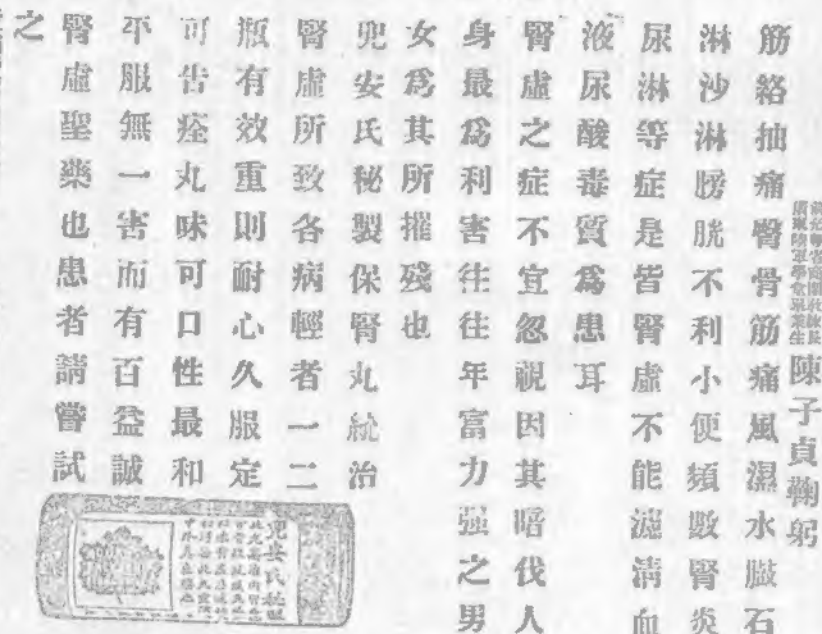 廣東陸軍學堂畢業生
陳子貞鞠躬
筋絡抽痛腎骨筋痛風濕水臌石
淋沙淋膀胱不利小便頻數腎炎
尿淋等症是皆腎虛不能濾清血
液尿酸毒質爲患耳
腎虛之症不宜忽視因其暗伐人
身最爲利害往往年富力强之男
女爲其所摧殘也
兜安氏秘製保腎丸統治
腎虛所致各病輕者一二
瓶有效重則耐心久服定
可告痊丸味可口性最和
平服無一害而有百益誠
腎虛聖藥也患者請嘗試
之
兜安氏秘製